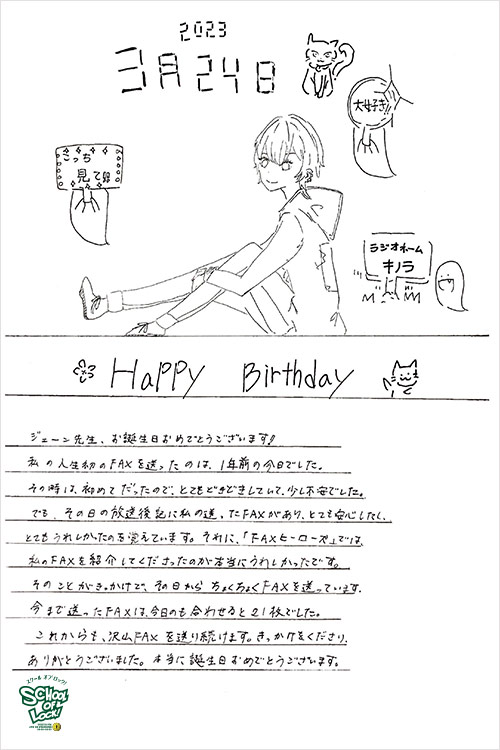 2023
3月24日
大好き
こっち
見て!!
ラジオネーム
キノラ
Happy Birthday
ジェーン先生、お誕生日おめでとうございます!
私の人生初のFAXを送ったのは、1年前の今日でした。
その時は、初めてだったので、とてもどきどきしていて、少し不安でした。
でも、その日の放送後記に私の送ったFAXがあり、とても安心したし、
とてもうれしかったのを覚えています。それに、「FAXヒーローズ」では、
私のFAXを紹介してくださったのが本当にうれしかったです。
そのことがきっかけで、その日からちょくちょくFAXを送っています。
今まで送ったFAXは、今日のも合わせると21枚でした。
これからも、沢山FAXを送り続けます。きっかけをくださり、
ありがとうございました。本当に誕生日おめでとうございます。
スクール オブ ロック!
SCHOOL
OF
LOCK!